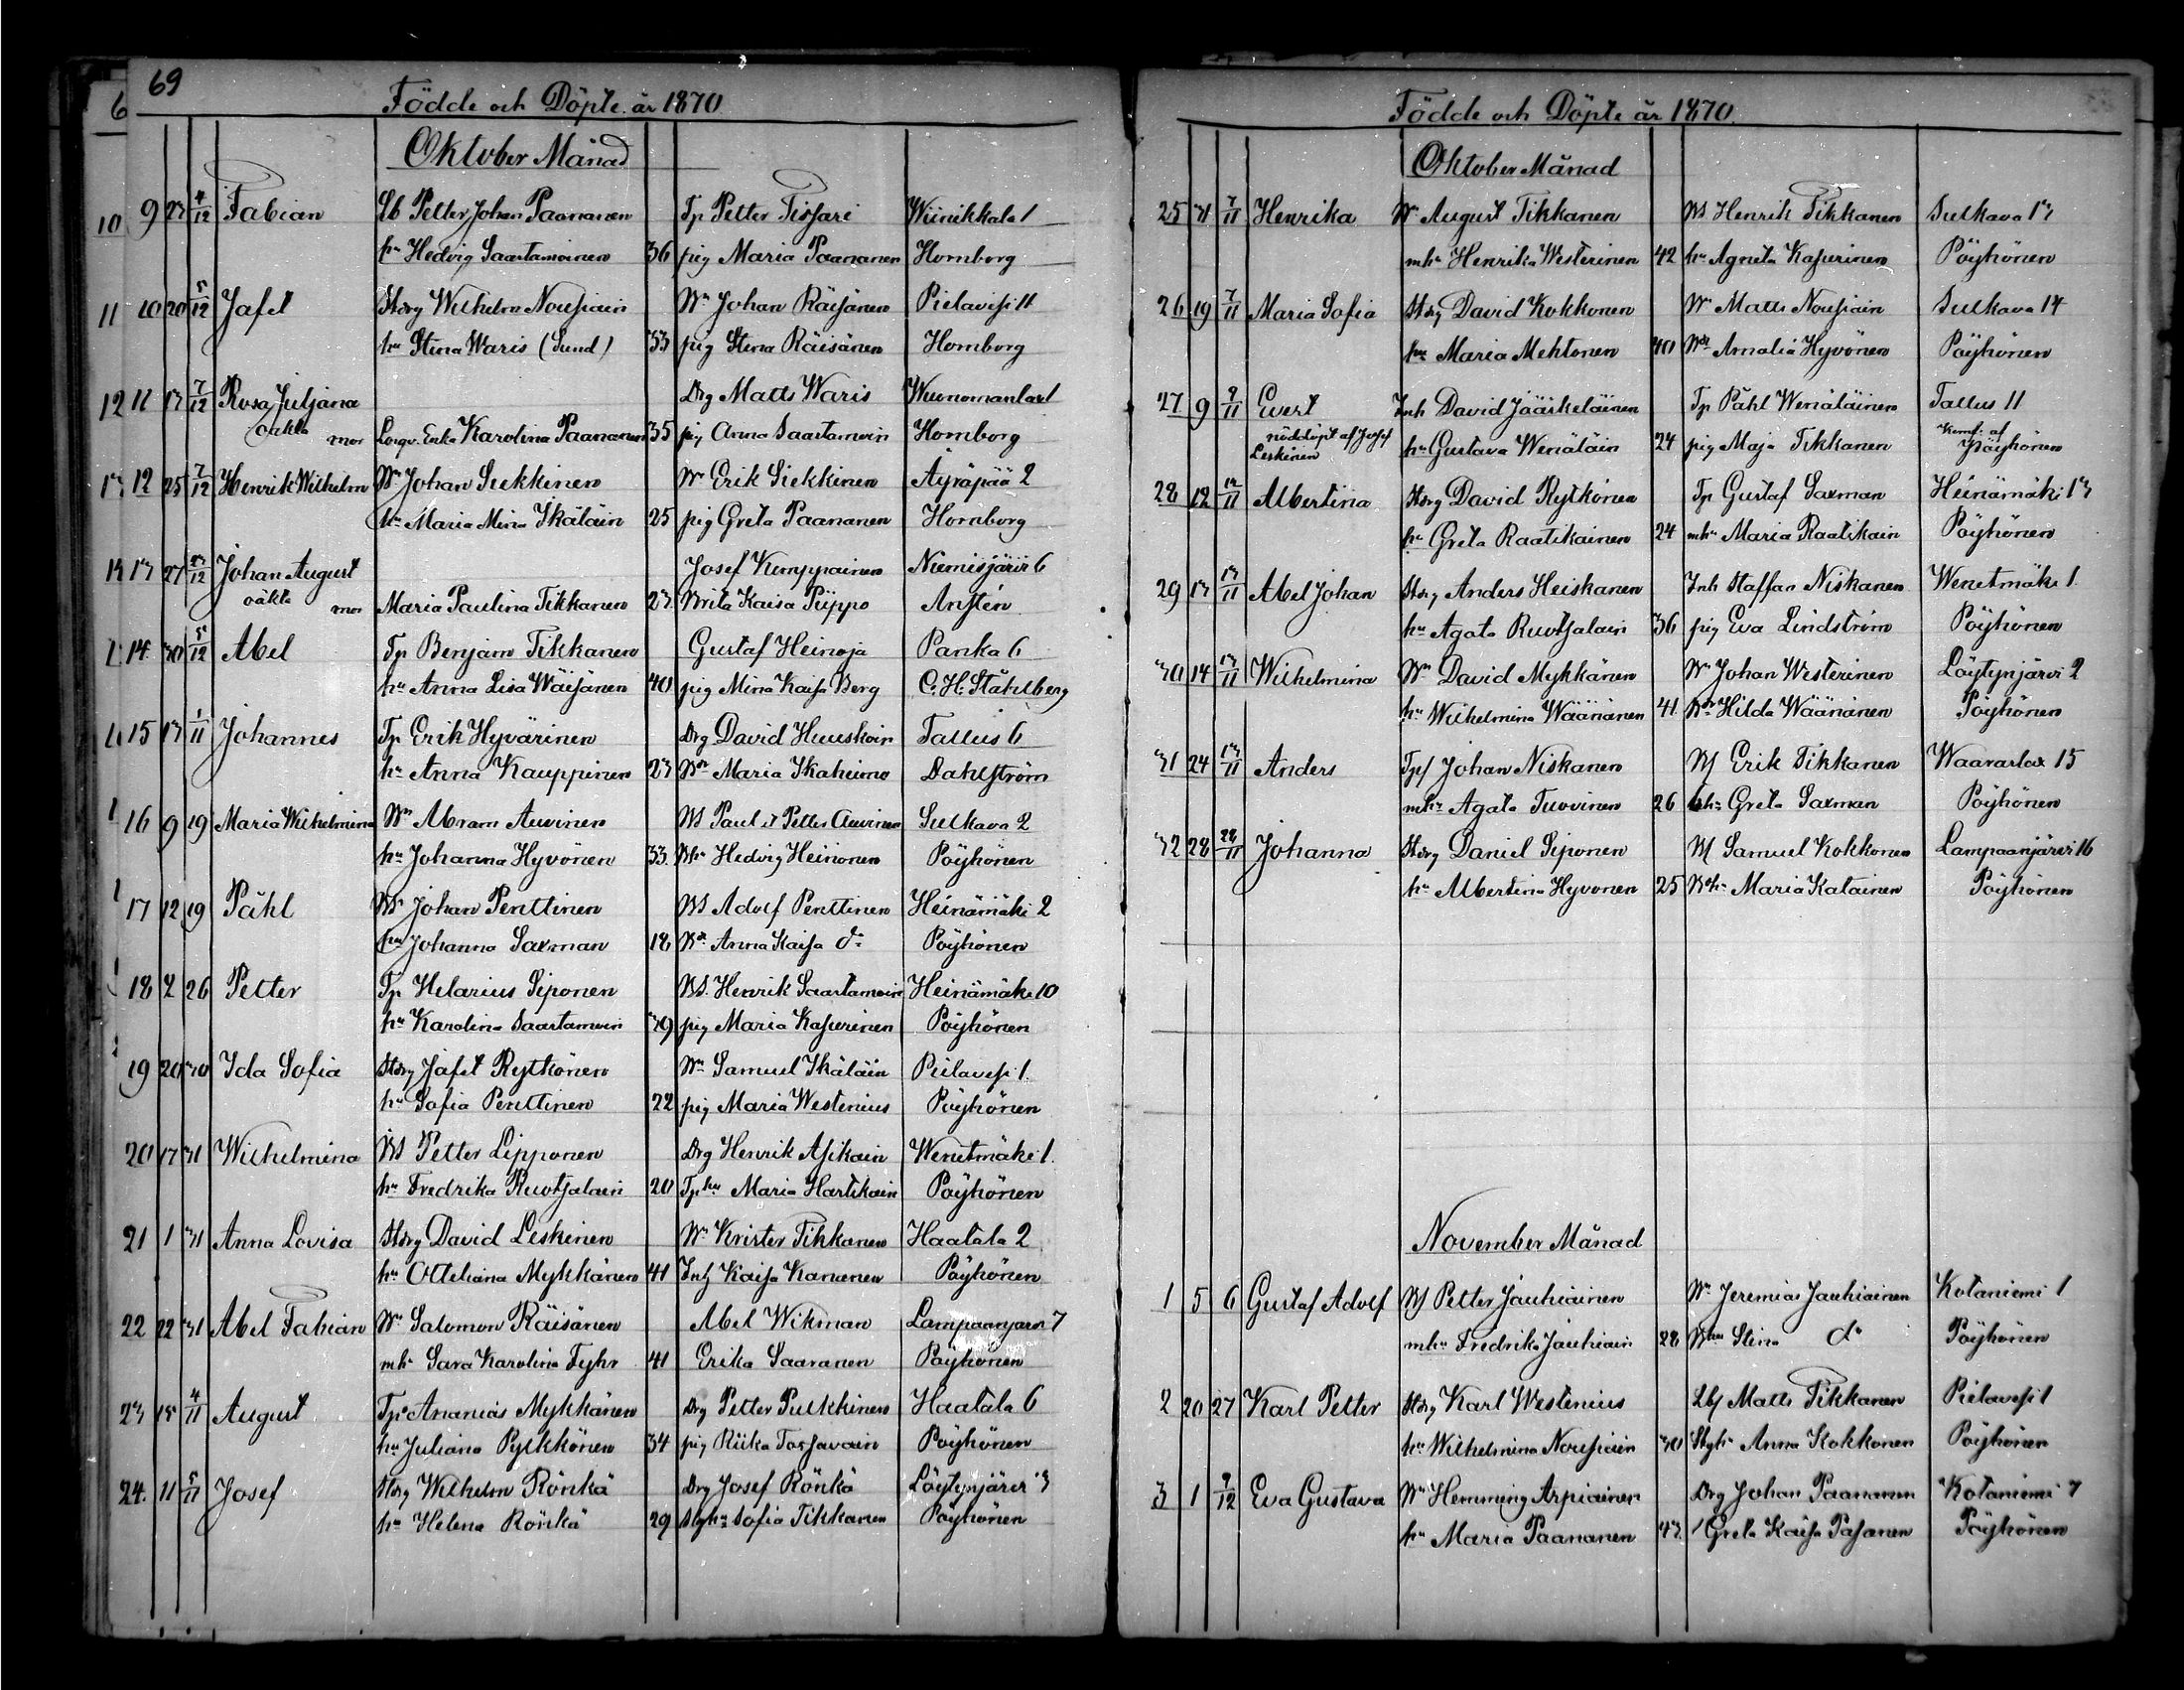 69
6
Födde och Döpte år 1870
Oktober Månad
10 9 23 4/12 Fabian Lb Petter Johan Paananen Tp Petter Tissari Wiinikkala 1
hu Hedvig Saastamoinen 36 pig Maria Paananen Hornborg
11 10 20 5/12 Jafet Stdrg Wilhelm Nousiain Wn Johan Räisänen Pielavesi 11
hu Stina Waris (Sund) 33 pig Stina Räisänen Hornborg
12 11 13 7/12 Rosa Juljana Drg Matts Waris
oäkta mor Karolina Paananen 35 pig Anna Saastamoin Hornborg
13 12 25 7/12 Henrik Wilhelm Wn Johan Siekkinen Wn Erik Siekkinen Äyräpää 2
hu Maria Mina Ikäläin 25 pig Greta Paananen Hornborg
13 27 Johan August Josef Kemppainen Niemisjärvi 6
oäkta mor Maria Paulina Tikkanen 23 Brita Kaisa Piippo
14 30 5/12 Abel Tp Benjam Tikkanen Gustaf Heinoja Panka 6
hu Anna Lisa Wäisänen 40 pig Mina Kaisa Berg C. H. Ståhlberg
15 13 1/11 Johannes Tp Erik Hyvärinen Drg David Huuskoin Tallus 6
hu Anna Kauppinen 23 Maria Ikaheimo Dahlström
16 9 19 Maria Wilhelmina Wn Abram Auvinen WS Paul d Petter Auvinen Sulkava 2
hu Johanna Hyvönen 33. Hedvig Heinonen Pöyhönen
17 12 19 Påhl Ws Johan Penttinen WS Adolf Penttinen Heinämäki 2
hu Johanna Saxman 18 Anna Kaisa do Pöyhönen
18 2 26 Petter Tp Hilarius Siponen WS. Henrik Saastamoin Heinämäki 10
hu Karolina Saastamoin 39 pig Maria Kasurinen Pöyhönen
19 20 30 Ida Sofia Stdrg Jafet Rytkönen Wn Samuel Ikäläin Pielavesi 1.
hu Sofia Penttinen 22 pig Maria Westenius Pöyhönen
20 17 31 Wilhelmina WS Petter Lipponen Drg Henrik Asikain Wenetmäki 1.
hu Fredrika Ruotsalain 20 Tphu Maria Hartikain Pöyhönen
21 1 31 Anna Lovisa Stdrg David Leskinen Wn Krister Tikkanen Haatala 2
hu Otteliana Mykkänen 41 Inh Kaisa Kananen Pöyhönen
22 22 31 Abel Fabian Wn Salomon Räisänen Abel Wikman Lampaanjärvi 7
mhu Sara Karolina Fyhr 41 Erika Saaranen Pöyhönen
23 15 4/11 August Tps Ananias Mykkänen Drg Petter Pulkkinen Haatala 6
hu Juliana Pylkkönen 34 pig Riika Tossavain Pöyhönen
24. 11 5/11 Josef Stdrg Wilhelm Rönkä Drg Josef Rönkä Löytynjärvi 3
hu Helena Rönkä 29 Sofia Tikkanen Pöyhönen
Födde och Döpte år 1870.
Oktober Månad
25 31 7/11 Henrika Wn August Tikkanen WS Henrik Tikkanen Sulkava 13
mhu Henrika Westerinen 42 hu Agneta Kasurinen Pöyhönen
26 19 7/11 Maria Sofia Stdrg David Kokkonen Wn Matts Nousiain Sulkava 14
hu Maria Mehtonen 40 Amalia Hyvönen Pöyhönen
27 9 9/11 Evert Inh David Jääskeläinen Tp Påhl Wenäläinen Tallus 11
nöddöpt af Josef Leskinen hu Gustava Wenäläin 24 pig Maja Tikkanen Konf. af Pöyhönen
28 12 Albertina Stdrg David Rytkönen Tp Gustaf Saxman Heinämäki 13
hu Greta Raatikainen 24 mhu Maria Raatikain Pöyhönen
29 13 13/11 Abel Johan Stdrg Anders Heiskanen Inh Staffan Niskanen Wenetmäki 1.
hu Agata Ruotsalain 36 pig Eva Lindström Pöyhönen
30 14 13/11 Wilhelmina Wn David Mykkänen Wn Johan Westerinen Löytynjärvi 2
hu Wilhelmina Wäänänen 41. Hilda Wäänänen Pöyhönen
31 24 13/11 Anders Tps Johan Niskanen WS Erik Tikkanen Waaraslax 15
mhu Agata Tuovinen 26 Greta Saxman Pöyhönen
32 28 28/11 Johanna Stdrg Daniel Siponen WS Samuel Kokkonen Lampaanjärvi 16
hu Albertina Hyvonen 25 Maria Katainen Pöyhönen
November Månad
1 5 6 Gustaf Adolf WS Petter Jauhiainen Wn Jeremias Jauhiainen Kotaniemi 1
mhu Fredrika Jauhiain 28 Whu Stina do Pöyhönen
2 20 27 Karl Petter Stdrg Karl Westenius Lbs Matts Tikkanen Pielavesi 1
hu Wilhelmina Nousiain 30 Anna Kokkonen Pöyhönen
3 1 9/12 Eva Gustava Wn Hemming Arpiainen Drg Johan Paananen Kotaniemi 7
hu Maria Paananen 43. Greta Kaisa Pasanen Pöyhönen